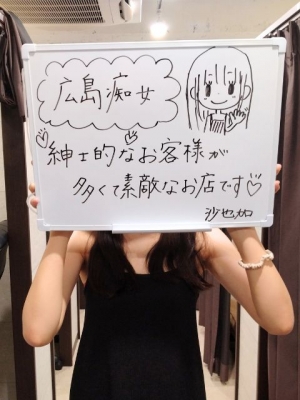 広島痴女
紳士的なお客様が
多くて素敵なお店です♡
沙也加